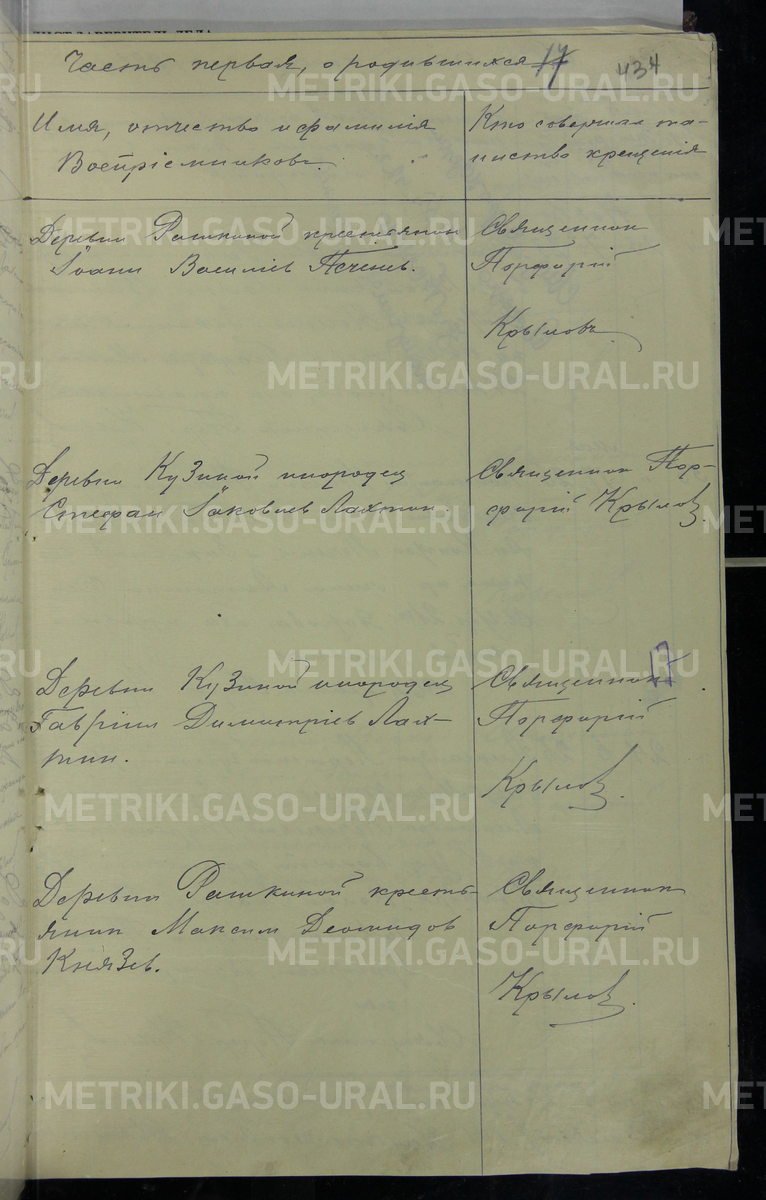 ЛИСТ-ЗАВЕРИТЕЛЬ ДЕЛА
Часть первая, о родившихся 17 434
Имя, отчество и фамилія
Воспріемниковъ.
Кто совершал та-
инство крещенія
Деревни Рашкиной крестьянин
Іоанн Василіев Печенев.
Священник
Порфирій
Крыловъ
Деревни Кузиной инородец
Стефан Іаковлев Лахтин.
Священник Пор-
фирій Крылов
17
Деревни Кузиной инородец
Гавріил Димитріев Лах-
тин.
Священник
Порфирій
Крылов.
Деревни Рашкиной кресть-
янин Максим Деомидов
Князев.
Священник
Порфирій
Крылов.
METRIKI.GASO-URAL.RU